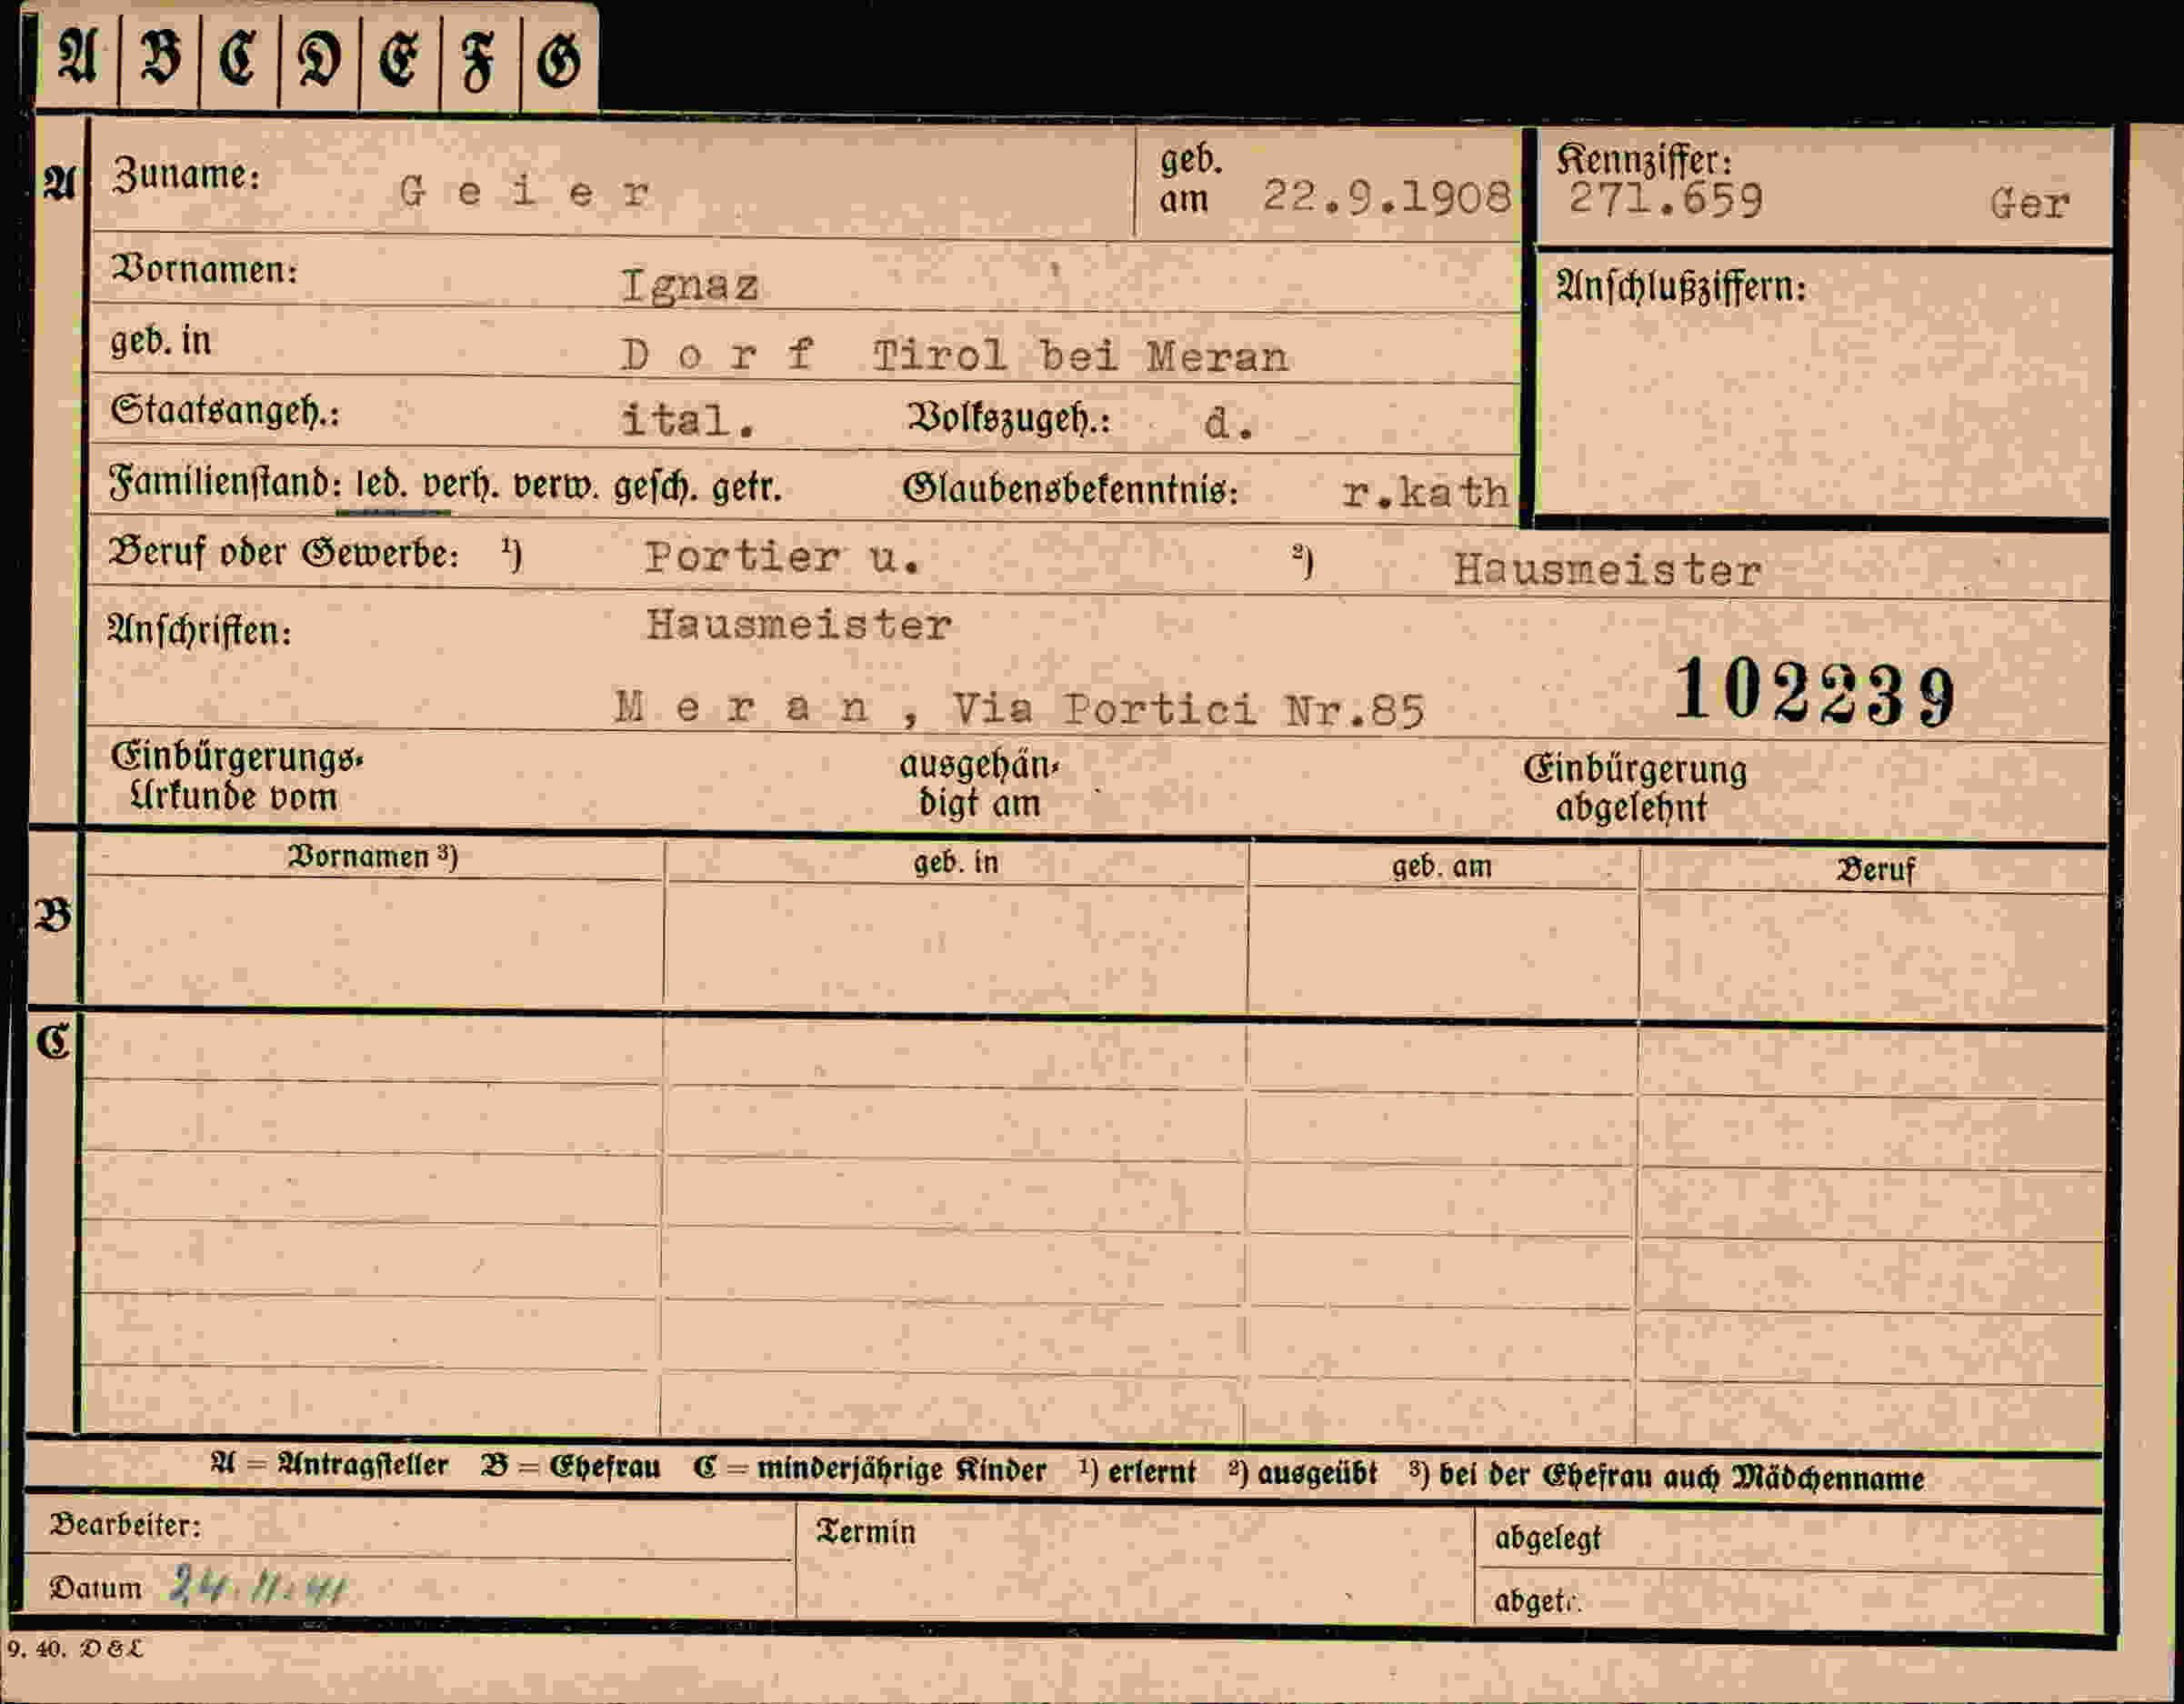 A B C D E F G
A Zuname: Geier geb. am 22.9.1908 Kennziffer: 271.659 Ger
Vornamen: Ignaz Anschlußziffern:
geb. in Dorf Tirol bei Meran
Staatsangeh.: ital. Volkszugeh.: d.
Familienstand: led. verh. verw. gesch. getr. Glaubensbekenntnis: r.kath
Beruf oder Gewerbe: ¹) Portier u. ²) Hausmeister
Anschriften: Hausmeister
Meran, Via Portici Nr.85 102239
Einbürgerungs- ausgehän- Einbürgerung
Urkunde vom digt am abgelehnt
Vornamen ³) geb. in geb. am Beruf
B
C
A = Antragsteller B = Ehefrau C = minderjährige Kinder ¹) erlernt ²) ausgeübt ³) bei der Ehefrau auch Mädchenname
Bearbeiter: Termin abgelegt
Datum 24.11.41 abgetr.
9. 40. D&L